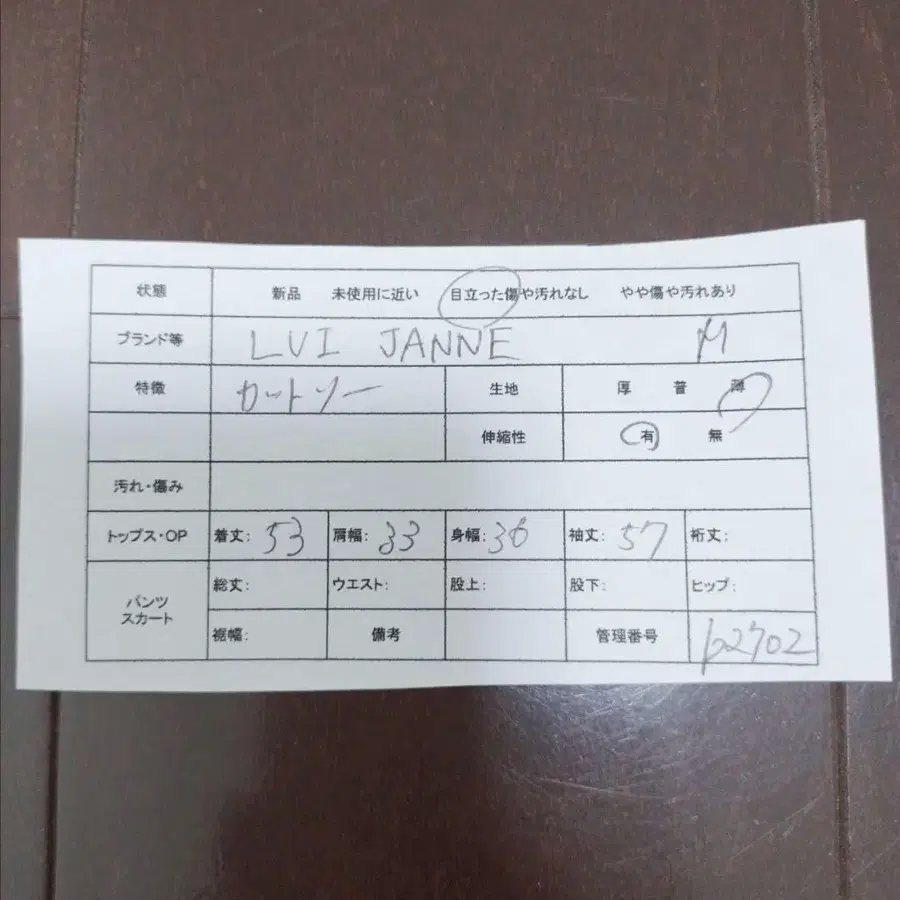 状態 新品 未使用に近い 目立った傷や汚れなし やや傷や汚れあり
ブランド等 LUI JANNE M
特徴 カットソー 生地 厚 普 薄
伸縮性 有 無
汚れ・傷み
トップス・OP 着丈: 53 肩幅: 33 身幅: 36 袖丈: 57 裄丈:
パンツ スカート 総丈: ウエスト: 股上: 股下: ヒップ:
裾幅: 備考 管理番号 b2702